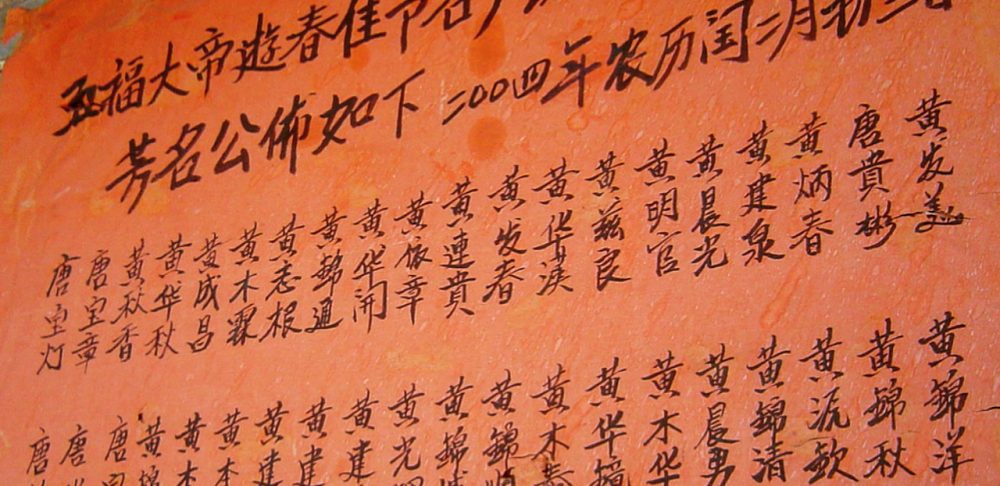 五福大帝遊春佳节各户
芳名公佈如下 二〇〇四年农历闰二月初三
黄发美
唐貴彬
黄炳春
黄建泉
黄晨光
黄明官
黄兹良
黄华淇
黄发春
黄連貴
黄依章
黄华開
黄錦通
黄志根
黄木霖
黄成昌
黄华秋
黄秋香
唐宝章
唐 灯
黄錦洋
黄錦秋
黄流欽
黄錦清
黄晨勇
黄木华
黄华
黄木
黄錦
黄錦
黄光
黄建
黄建
黄建
黄木
黄木
黄錦
唐
唐
唐